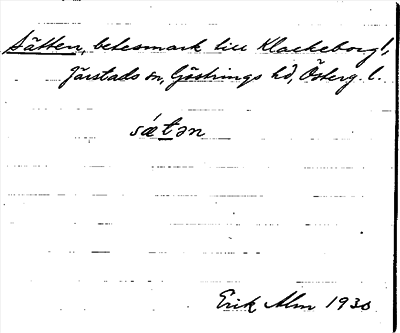 Sätten, betesmark till Klackeborg,
Järstads sn, Göstrings hd, Österg. l.
sǽtən
Erik Alm 1930